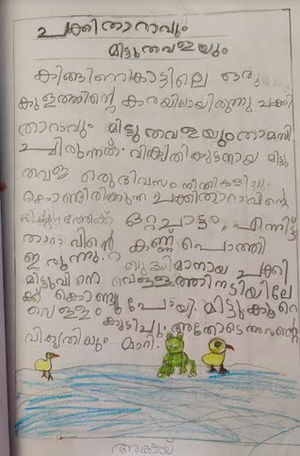 ചക്കിതാറാവും
മിട്ടുതവളയും
കിങ്ങിണികാട്ടിലെ ഒരു
കുളത്തിന്റെ കരയിലായിരുന്നു ചക്കി
താറാവും മിട്ടു തവളയും താമസി
ച്ചിരുന്നത്. വികൃതികുട്ടനായ മിട്ടു
തവള ഒരു ദിവസം നീന്തികളിച്ചു
കൊണ്ടിരിക്കുന്ന ചക്കിതാറാവിന്റെ
ഒറ്റച്ചാട്ടം, എന്നിട്ട്
താറാവിന്റെ കണ്ണ് പൊത്തി
ഇരുന്നു. ബുദ്ധിമാനായ ചക്കി
മിട്ടുവിനെ വെള്ളത്തിനടിയിലേ
ക്ക് കൊണ്ടുപോയി. മിട്ടുകുറെ
വെള്ളം കുടിച്ചു. അതോടെ അവന്റെ
വികൃതിയും മാറി.
അക്ഷയ്